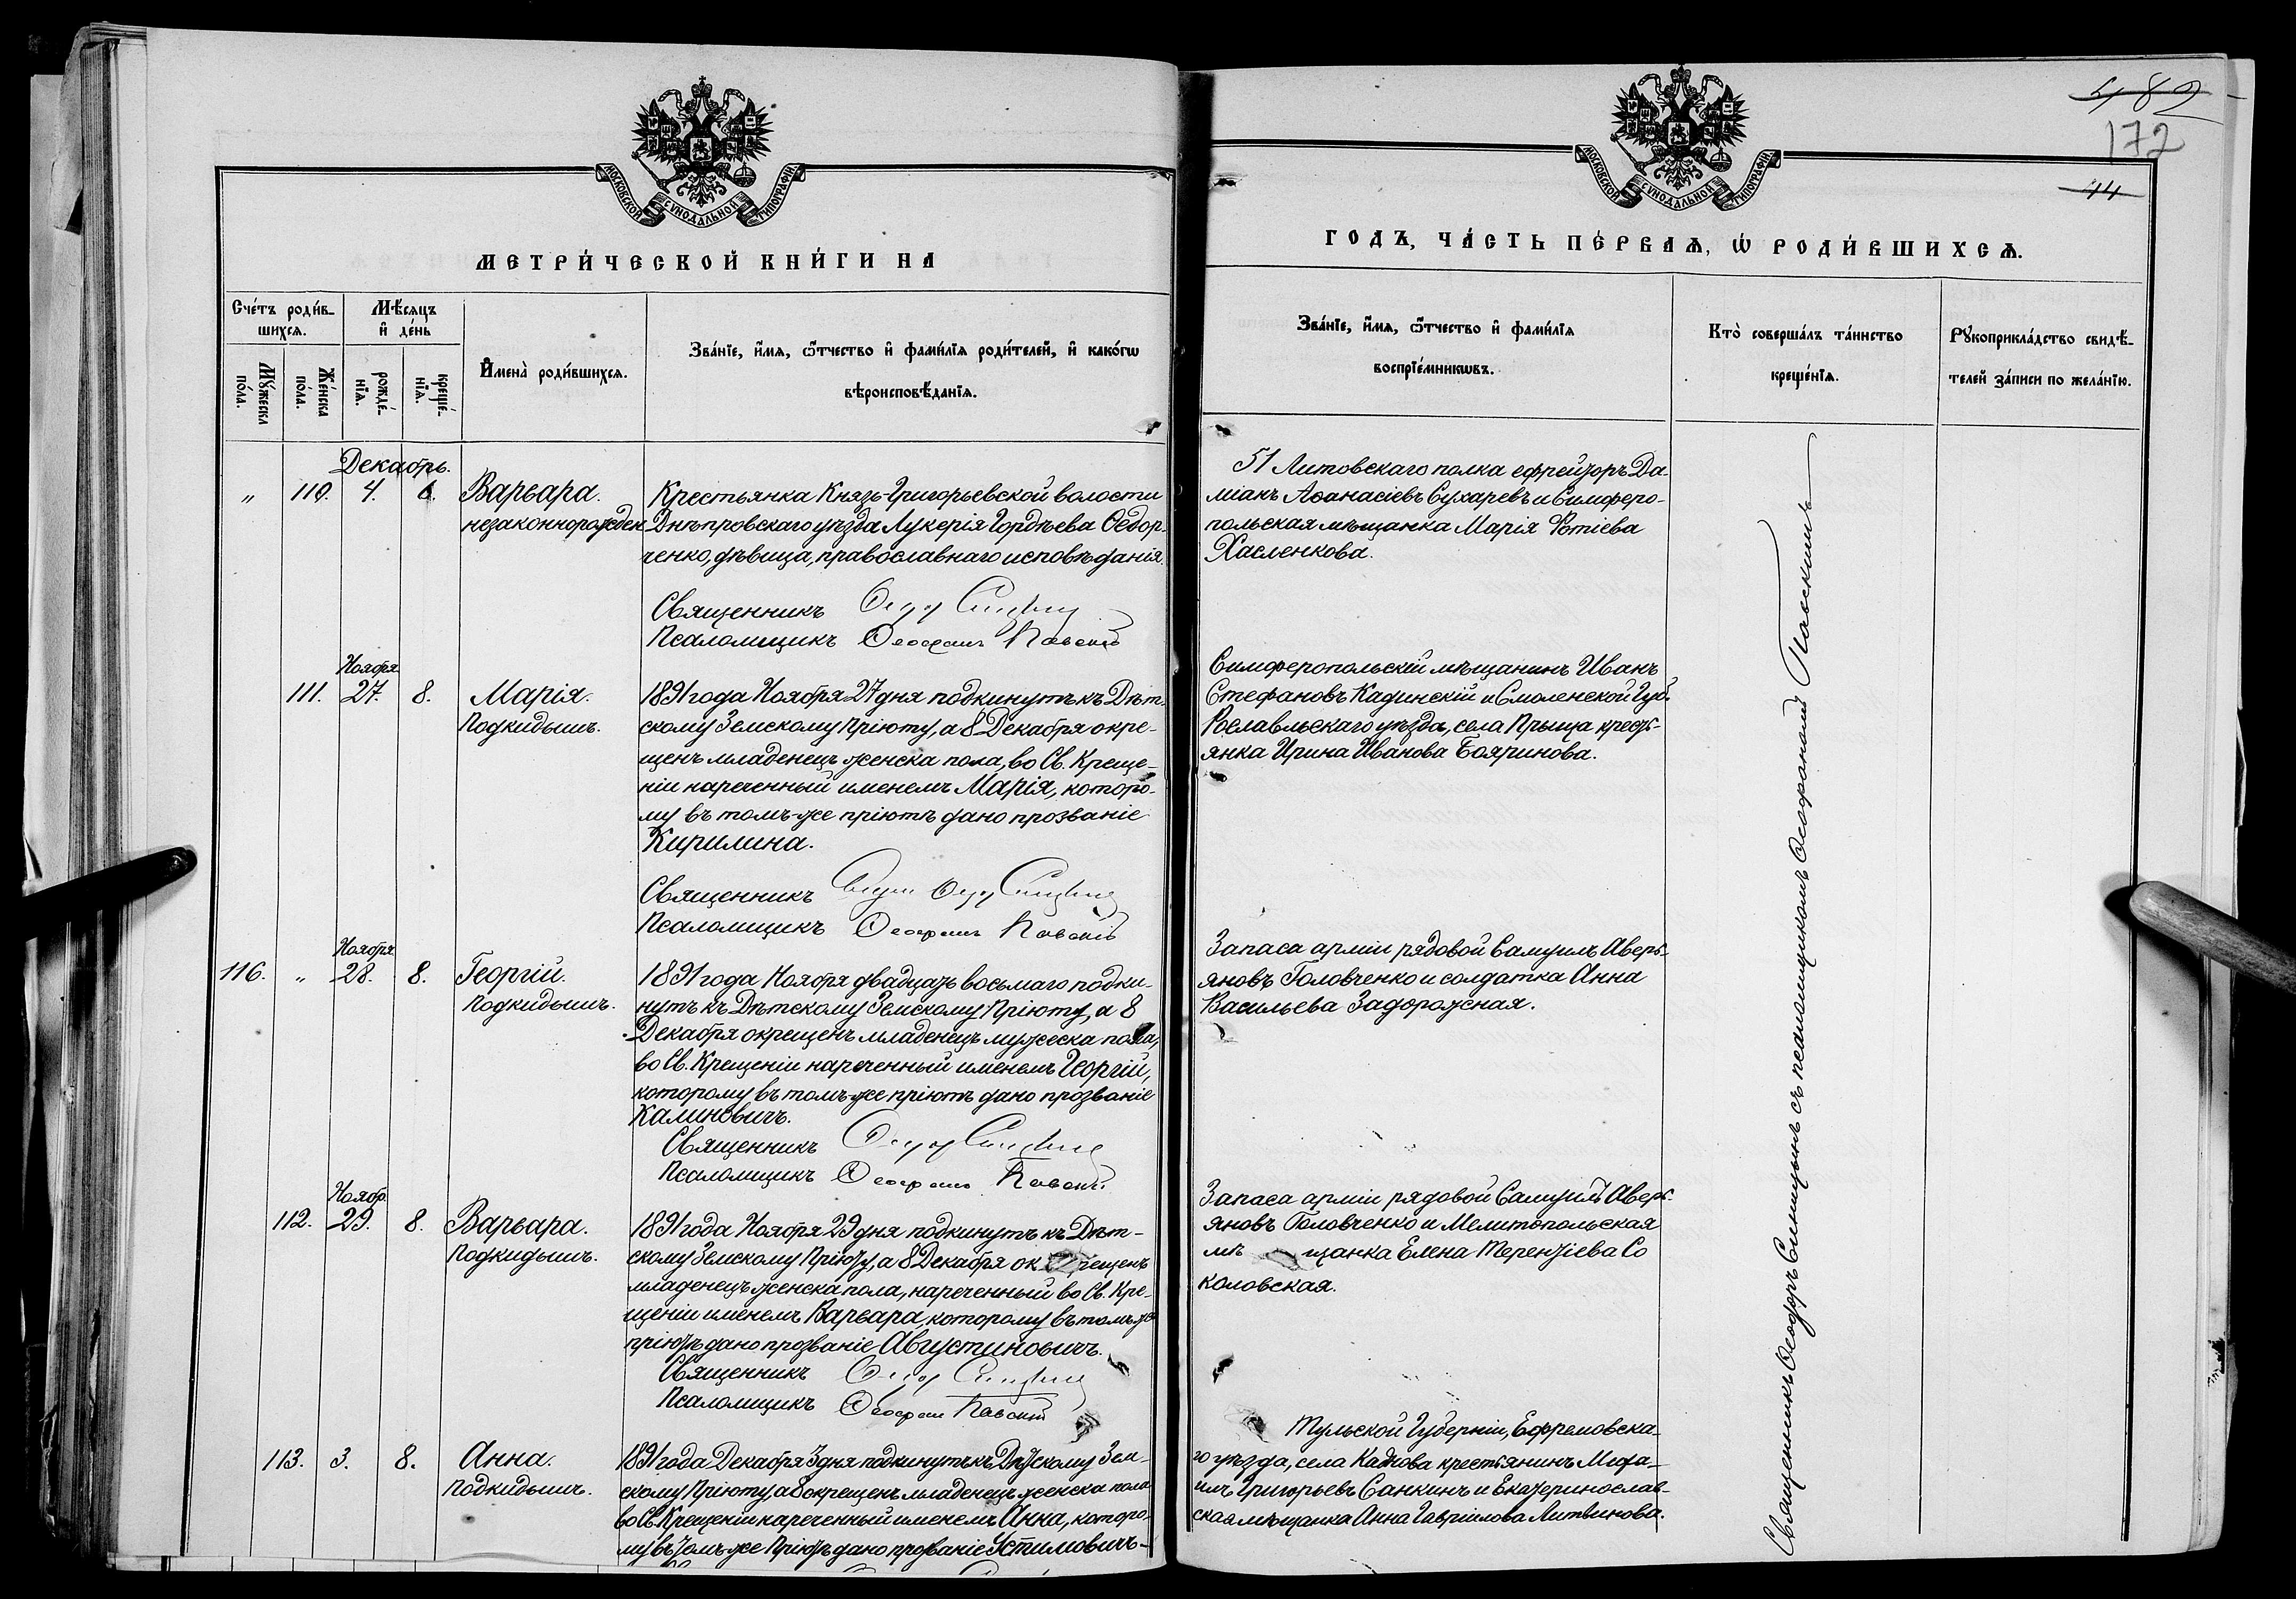 МОСКОВСКОЙ СѴНОДАЛЬНОЙ ТИПОГРАФІИ
МЕТРИ́ЧЕСКОЙ КНИ́ГИ НА
Сче́тъ роди́в-
шихсѧ.
Мѣ́сѧцъ
и҆ де́нь
Мꙋ́жеска
по́ла.
Же́нска
по́ла.
рожде́-
нїѧ.
креще́-
нїѧ.
И҆мена̀ роди́вшихсѧ.
Зва́нїе, и҆́мѧ, ѻ҆́тчество и҆ фамі́лїѧ роди́телей, и҆ како́гѡ
вѣроисповѣ́данїѧ.
Декабрь.
" 110. 4. 6. Варвара.
незаконнорожден.
Крестьянка Князь-Григорьевской волости
Днѣпровскаго уѣзда Лукерія Гордѣева Ѳедор-
ченко, дѣвица, православнаго исповѣданія.
Священникъ
Псаломщикъ Ѳеофанъ Павскій
Ноября
111. 27. 8. Марія.
Подкидышъ.
1891 года Ноября 27 дня подкинутъ къ Дѣт-
скому Земскому Пріюту, а 8 Декабря окре-
щенъ младенецъ женска пола, во Св. Креще-
ніи нареченный именемъ Марія, которо-
му въ томъ-же пріютѣ дано прозваніе
Кирилина.
Священникъ
Псаломщикъ Ѳеофанъ Павскій
Ноября
116. " 28. 8. Георгій.
Подкидышъ.
1891 года Ноября двадцать восьмаго подки-
нутъ къ Дѣтскому Земскому Пріюту, а 8
Декабря окрещенъ младенецъ мужеска пола,
во Св. Крещеніи нареченный именемъ Георгій,
которому въ томъ-же пріютѣ дано прозваніе
Калиновичъ.
Священникъ
Псаломщикъ Ѳеофанъ Павскій
Ноябр.
112. 29. 8. Варвара.
Подкидышъ.
1891 года Ноября 29 дня подкинутъ къ Дѣт-
скому Земскому Пріюту, а 8 Декабря окрещенъ
младенецъ женска пола, нареченный во Св. Кре-
щеніи именемъ Варвара, которому въ томъ же
пріютѣ дано прозваніе Августиновичъ.
Священникъ
Псаломщикъ Ѳеофанъ Павскій
113. 3. 8. Анна.
Подкидышъ.
1891 года Декабря 3 дня подкинутъ къ Дѣтскому Зем-
скому Пріюту а 8 окрещенъ младенецъ женска пола
во Св. Крещеніи нареченный именемъ Анна, которо-
му въ томъ же Пріютѣ дано прозваніе Устимовичъ-
482
172
44
МОСКОВСКОЙ СѴНОДАЛЬНОЙ ТИПОГРАФІИ
ГОДЪ, ЧА́СТЬ ПЕ́РВАѦ, Ѡ҆ РОДИ́ВШИХСѦ.
Зва́нїе, и҆́мѧ, ѻ҆́тчество и҆ фамі́лїѧ
воспрїе́мникѡвъ.
Кто̀ соверша́лъ та́инство
креще́нїѧ.
Рꙋкоприкла́дство свидѣ́-
телей за́писи по жела́нїю.
51 Литовскаго полка ефрейторъ Да-
міанъ Аѳанасіевъ Сухаревъ и Симферо-
польская мѣщанка Марія Фотіева
Хасленкова.
Симферопольскій мѣщанинъ Иванъ
Стефановъ Кадинскій и Смоленской Губ.
Рославльскаго уѣзда, села Прыща кресть-
янка Ирина Иванова Бояринова.
Запаса арміи рядовой Самуилъ Аверь-
яновъ Головченко и солдатка Анна
Васильева Задорожная.
Запаса арміи рядовой Самуилъ Аверь-
яновъ Головченко и Мелитопольская
мѣщанка Елена Терентіева Со
коловская.
Тульской Губерніи, Ефремовска-
го уѣзда, села Каднова крестьянинъ Миха-
илъ Григорьевъ Санкинъ и Екатеринослав-
ская мѣщанка Анна Гавріилова Литвинова.
Священникъ Ѳеодоръ Синицынъ съ псаломщикомъ Ѳеофаномъ Павскимъ